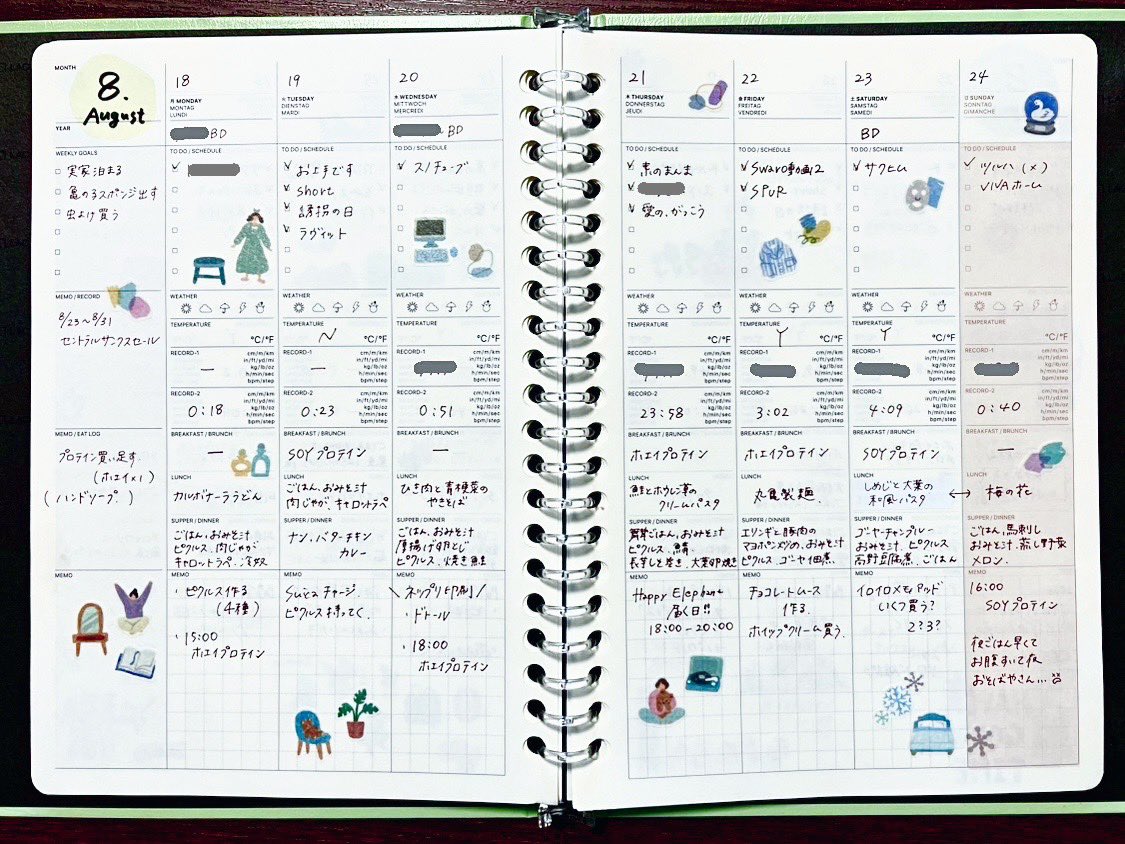 MONTH
8.
August
YEAR
WEEKLY GOALS
実家泊まる
亀の子スポンジ出す
虫よけ買う
MEMO / RECORD
8/23〜8/31
セントラルサンクスセール
MEMO / EAT LOG
プロテイン買い足す.
(ホエイ×1)
(ハンドソープ)
18
月 MONDAY
MONTAG
LUNDI
BD
TO DO / SCHEDULE
WEATHER
TEMPERATURE
°C/°F
RECORD-1
cm/m/km
in/ft/yd/mi
kg/lb/oz
h/min/sec
bpm/step
—
RECORD-2
cm/m/km
in/ft/yd/mi
kg/lb/oz
h/min/sec
bpm/step
0:18
BREAKFAST / BRUNCH
—
LUNCH
カルボナーラうどん
SUPPER / DINNER
ごはん、おみそ汁
ピクルス、肉じゃが
キャロットラペ、冷奴
MEMO
・ピクルス作る
(4種)
・15:00
ホエイプロテイン
19
火 TUESDAY
DIENSTAG
MARDI
TO DO / SCHEDULE
お上手です
short
誘拐の日
ラヴィット
WEATHER
TEMPERATURE
N
°C/°F
RECORD-1
cm/m/km
in/ft/yd/mi
kg/lb/oz
h/min/sec
bpm/step
—
RECORD-2
cm/m/km
in/ft/yd/mi
kg/lb/oz
h/min/sec
bpm/step
0:23
BREAKFAST / BRUNCH
SOYプロテイン
LUNCH
ごはん、おみそ汁
肉じゃが、キャロットラペ
SUPPER / DINNER
ナン、バターチキン
カレー
MEMO
Suicaチャージ
ピクルス持ってく.
20
水 WEDNESDAY
MITTWOCH
MERCREDI
BD
TO DO / SCHEDULE
スノチューブ
WEATHER
TEMPERATURE
°C/°F
RECORD-1
cm/m/km
in/ft/yd/mi
kg/lb/oz
h/min/sec
bpm/step
RECORD-2
cm/m/km
in/ft/yd/mi
kg/lb/oz
h/min/sec
bpm/step
0:51
BREAKFAST / BRUNCH
—
LUNCH
ひき肉と青梗菜の
やきそば
SUPPER / DINNER
ごはん、おみそ汁
厚揚げ卵とじ
ピクルス、焼き鮭
MEMO
\ ネップリ印刷 /
・ドトール
・18:00
ホエイプロテイン
21
木 THURSDAY
DONNERSTAG
JEUDI
TO DO / SCHEDULE
素のまんま
愛の、がっこう
WEATHER
TEMPERATURE
°C/°F
RECORD-1
cm/m/km
in/ft/yd/mi
kg/lb/oz
h/min/sec
bpm/step
RECORD-2
cm/m/km
in/ft/yd/mi
kg/lb/oz
h/min/sec
bpm/step
23:58
BREAKFAST / BRUNCH
ホエイプロテイン
LUNCH
鮭とホウレン草の
クリームパスタ
SUPPER / DINNER
ごはん、おみそ汁
ピクルス、鯖
大葉卵焼き
MEMO
Happy Elephant
届く日!!
18:00-20:00
22
金 FRIDAY
FREITAG
VENDREDI
TO DO / SCHEDULE
Swaro動画2
SPUR
WEATHER
TEMPERATURE
Y
°C/°F
RECORD-1
cm/m/km
in/ft/yd/mi
kg/lb/oz
h/min/sec
bpm/step
RECORD-2
cm/m/km
in/ft/yd/mi
kg/lb/oz
h/min/sec
bpm/step
3:02
BREAKFAST / BRUNCH
ホエイプロテイン
LUNCH
丸亀製麺.
SUPPER / DINNER
エリンギと豚肉の
マヨポン炒め、おみそ汁
ピクルス、ゴーヤ佃煮
MEMO
チョコレートムース
作る
ホイップクリーム買う.
23
土 SATURDAY
SAMSTAG
SAMEDI
BD
TO DO / SCHEDULE
サクヒム
WEATHER
TEMPERATURE
Y
°C/°F
RECORD-1
cm/m/km
in/ft/yd/mi
kg/lb/oz
h/min/sec
bpm/step
RECORD-2
cm/m/km
in/ft/yd/mi
kg/lb/oz
h/min/sec
bpm/step
4:09
BREAKFAST / BRUNCH
SOYプロテイン
LUNCH
しめじと大葉の
和風パスタ
↔
SUPPER / DINNER
ゴーヤーチャンプルー
おみそ汁、ピクルス
高野豆腐煮、ごはん
MEMO
イロイロメモパッド
いくつ買う?
2?3?
24
日 SUNDAY
SONNTAG
DIMANCHE
TO DO / SCHEDULE
ツルハ (×)
VIVAホーム
WEATHER
TEMPERATURE
°C/°F
RECORD-1
cm/m/km
in/ft/yd/mi
kg/lb/oz
h/min/sec
bpm/step
RECORD-2
cm/m/km
in/ft/yd/mi
kg/lb/oz
h/min/sec
bpm/step
0:40
BREAKFAST / BRUNCH
—
LUNCH
梅の花
SUPPER / DINNER
ごはん、馬刺し
おみそ汁、蒸し野菜
メロン.
MEMO
16:00
SOYプロテイン
夜ごはん早くて
お腹すいて夜
おそばやさん…